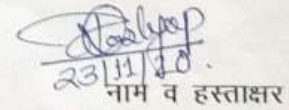 23/11/20.
नाम व हस्ताक्षर